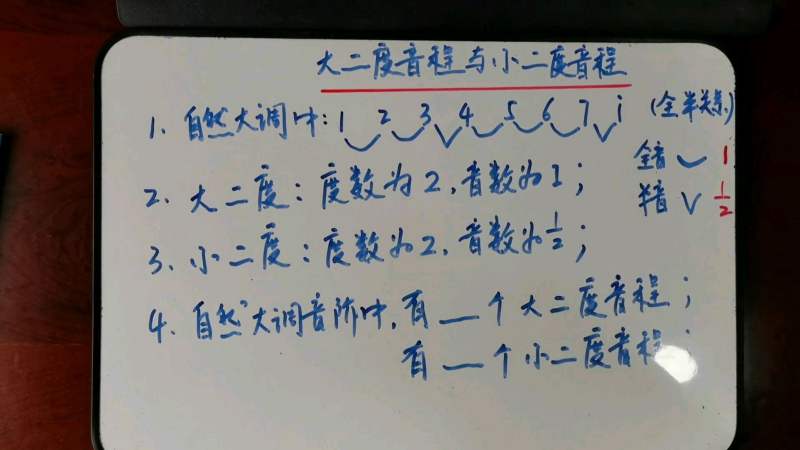 大二度音程与小二度音程
1、自然大调中: 1 2 3 4 5 6 7 i (全半关系)
全音 ⌣ 1
半音 ∨ 1/2
2、大二度: 度数为2, 音数为1;
3、小二度: 度数为2, 音数为1/2;
4、自然大调音阶中, 有__个大二度音程;
有__个小二度音程;